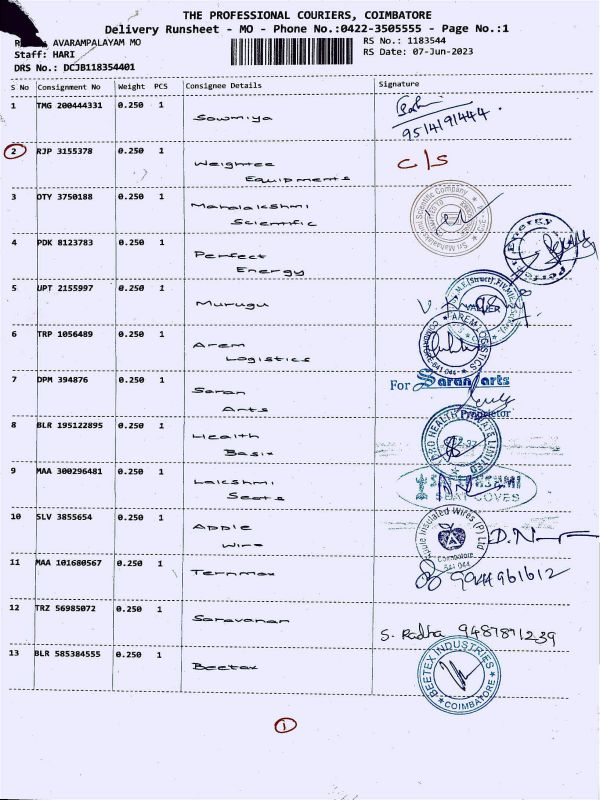 THE PROFESSIONAL COURIERS, COIMBATORE
Delivery Runsheet - MO - Phone No.:0422-3505555 - Page No.:1
AVARAMPALAYAM MO
RS No.: 1183544
Staff: HARI
RS Date: 07-Jun-2023
DRS No.: DCJB118354401
S No Consignment No Weight PCS Consignee Details Signature
1 TMG 200444331 0.250 1 Sowmiya
9514191444.
2 RJP 3155378 0.250 1 Weightec Equipments C/S
3 OTY 3750188 0.250 1 Mahalakshmi Scientific
4 PDK 8123783 0.250 1 Perfect Energy
5 UPT 2155997 0.250 1 Murugu
6 TRP 1056489 0.250 1 Arem Logistics
AREM LOGISTICS
7 DPM 394876 0.250 1 Saran Arts
For Saran arts
Proprietor
8 BLR 195122895 0.250 1 Health Basix
9 MAA 300296481 0.250 1 Lakshmi Seats
SEAT COVES
10 SLV 3855654 0.250 1 Apple Wire
Insulated Wires (P) Ltd
Coimbatore
641 044
11 MAA 101680567 0.250 1 Ternmax
9944961612
12 TRZ 56985072 0.250 1 Saravanan
S. Radha 9487871239
13 BLR 585384555 0.250 1 Beetex
BEETEX INDUSTRIES
COIMBATORE
1